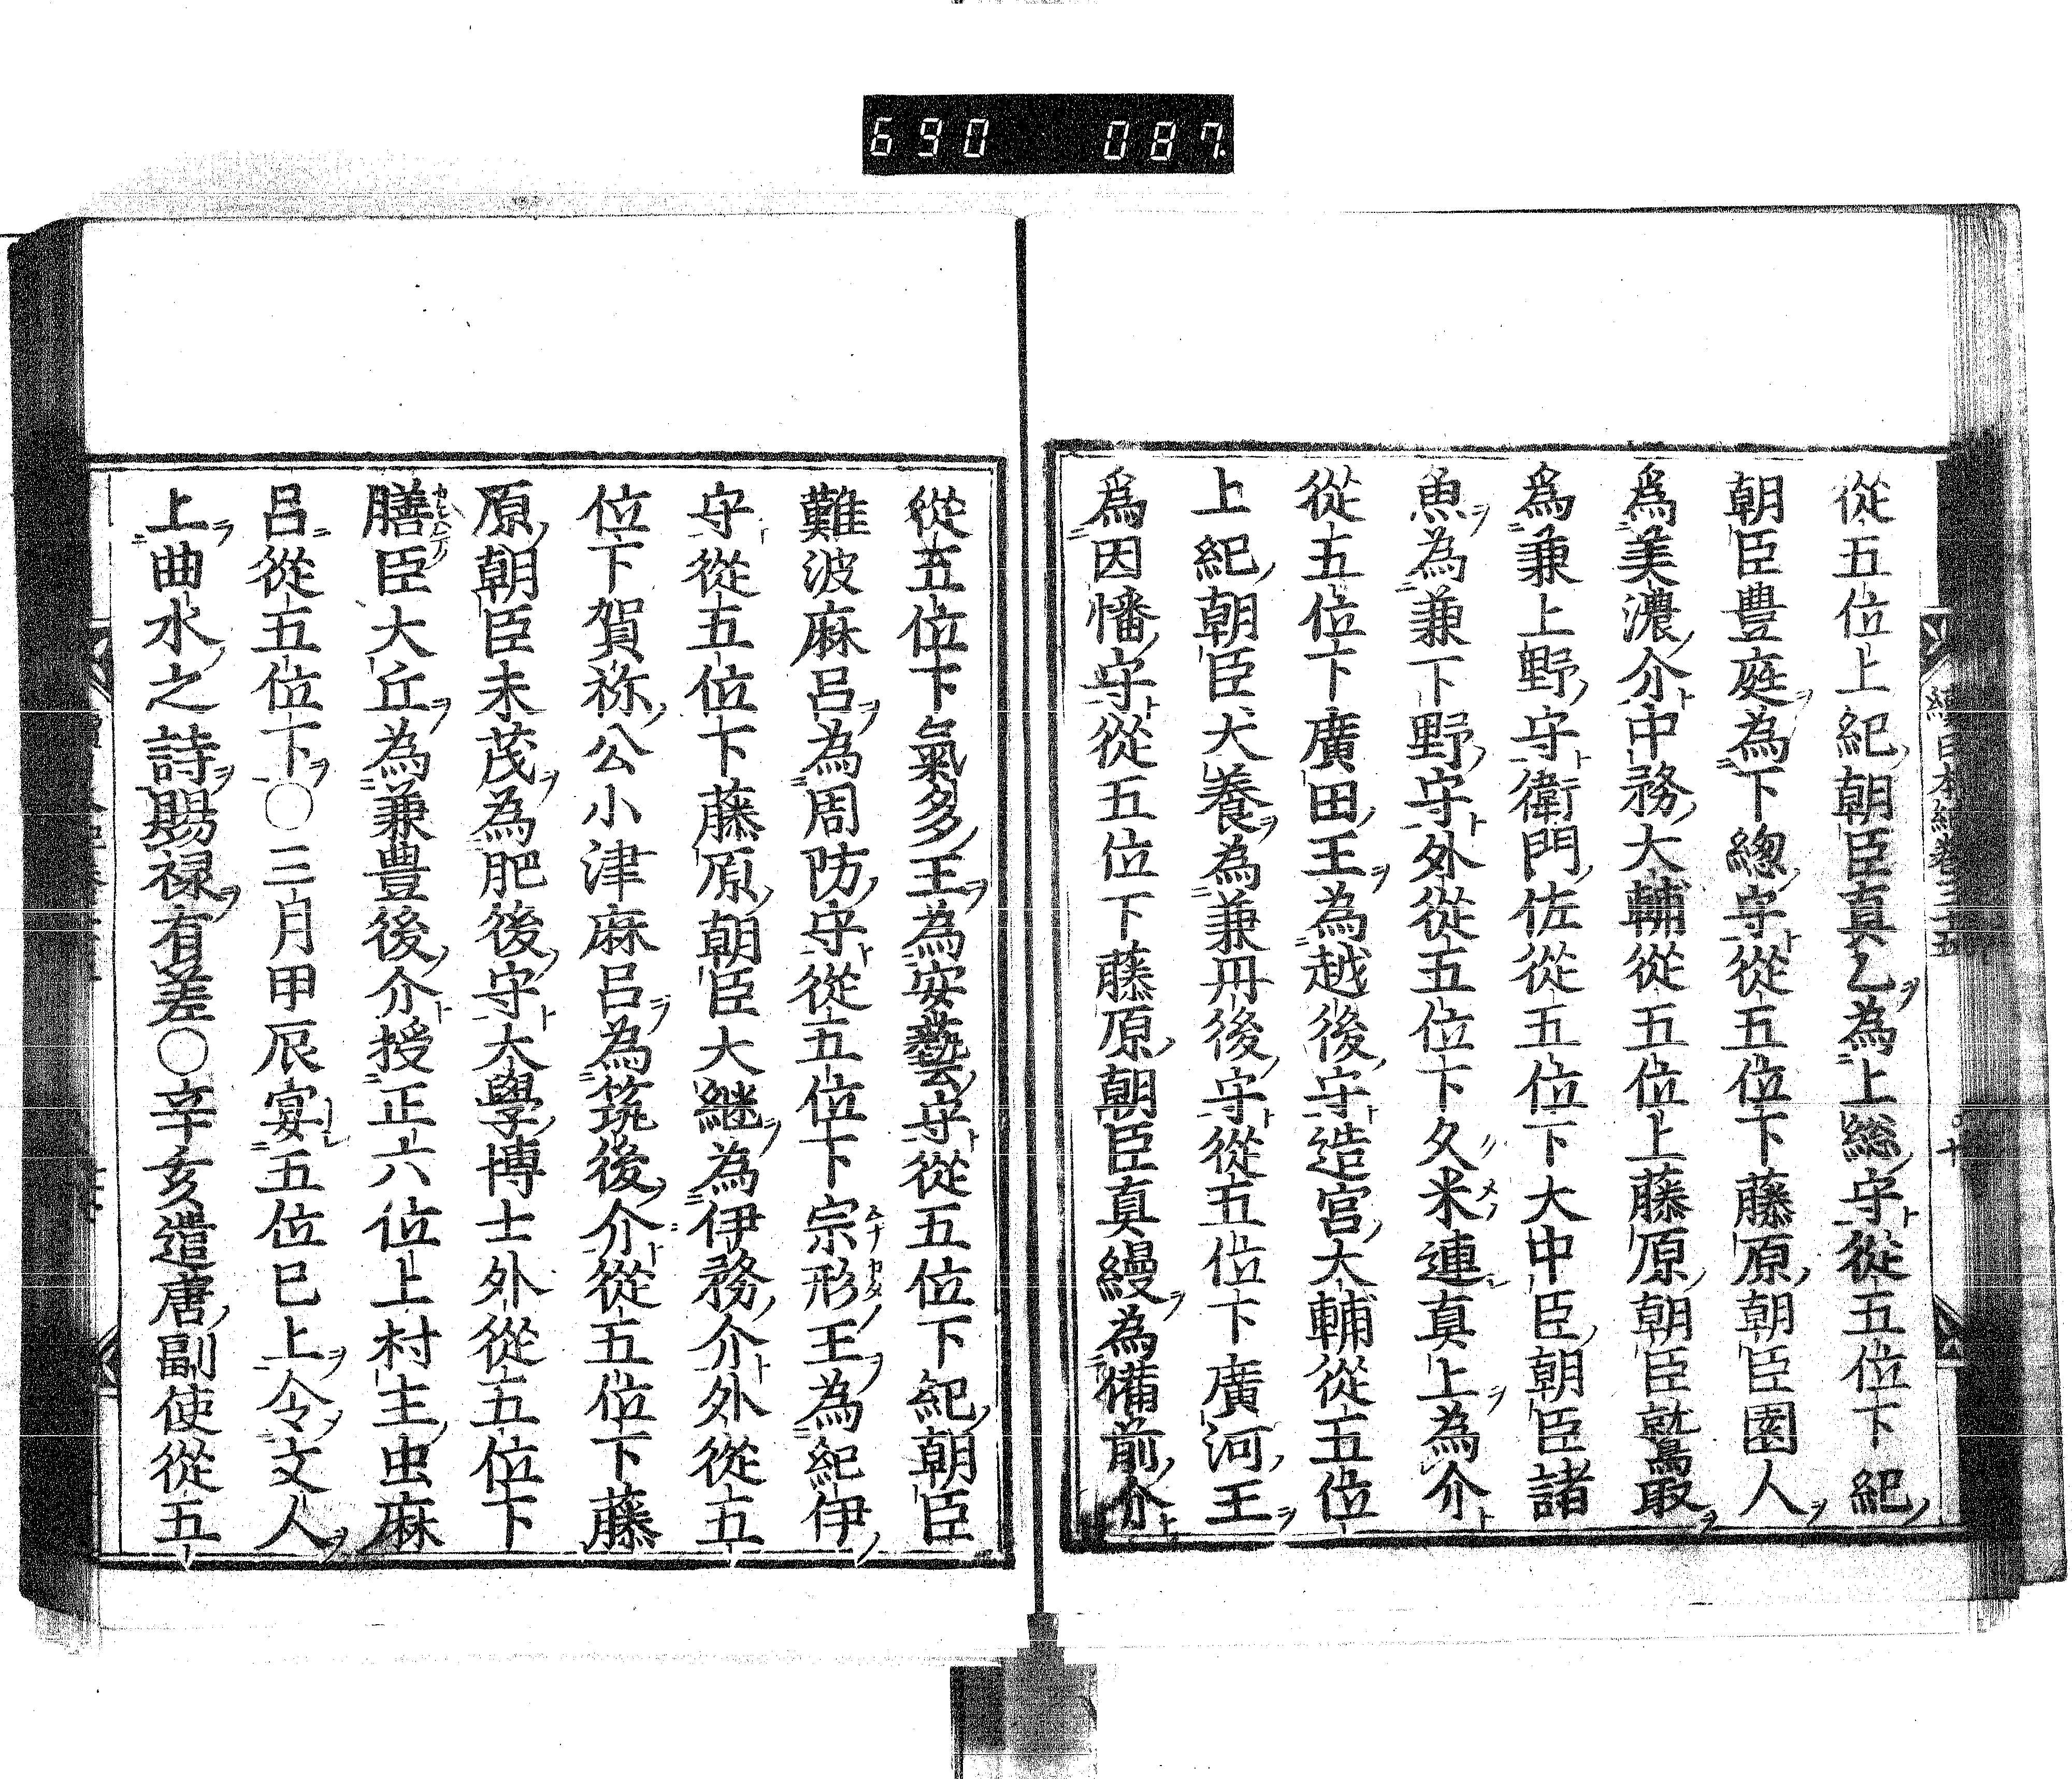 690 087.
續日本紀卷三十五
從五位上紀朝臣真乙為上総守從五位下紀
朝臣豊庭為下總守從五位下藤原朝臣園人
爲美濃介中務大輔從五位上藤原朝臣鷲取
爲兼上野守衛門佐從五位下大中臣朝臣諸
魚為兼下野守外從五位下久米連真上為介
從五位下廣田王為越後守造宮大輔從五位
上紀朝臣犬養為兼丹後守從五位下廣河王
爲因幡守從五位下藤原朝臣真縵為備前介
從五位下氣多王為安藝守從五位下紀朝臣
難波麻呂為周防守從五位下宗形王為紀伊
守從五位下藤原朝臣大継為伊務介外從五
位下賀祢公小津麻呂為筑後介從五位下藤
原朝臣末茂為肥後守大學博士外從五位下
膳臣大丘為兼豊後介授正六位上村主虫麻
呂從五位下〇三月甲辰宴五位巳上令文人
上曲水之詩賜禄有差〇辛亥遣唐副使從五